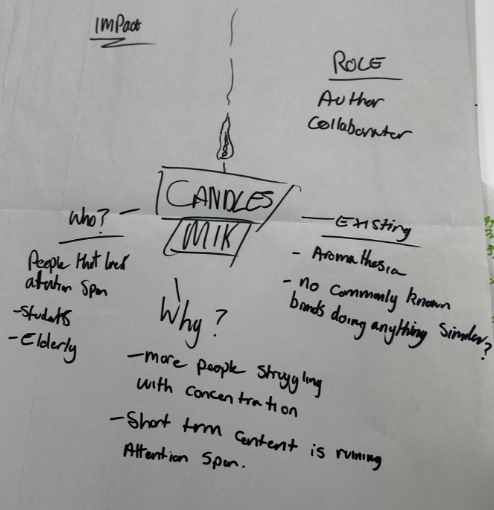 IMPact
ROLE
Author
Collaborator
CANDLES
MIK
Who?
People that lack
attention Span
-Students
-Elderly
Existing
- Aromathesia
- no commonly known
brands doing anything Similar?
Why?
-more people struggling
with concentration
-Short term content is ruining
Attention Span.